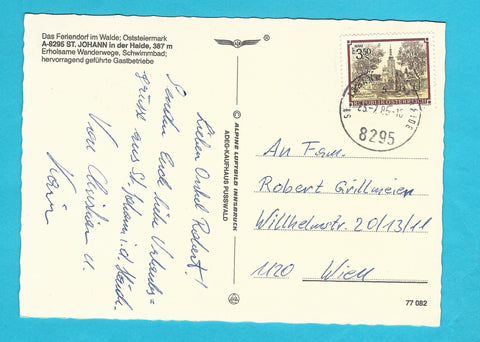 Das Feriendorf im Walde; Oststeiermark
A-8295 ST. JOHANN in der Haide, 387 m
Erholsame Wanderwege, Schwimmbad;
hervorragend geführte Gastbetriebe
Lieber Onkel Robert!
Senden Euch liebe Urlaubs=
grüsse aus St. Johann i. d. Haide
Von Christian u.
Karin
© ALPINE LUFTBILD INNSBRUCK
ADEG-KAUFHAUS PUSSWALD
3.50
REPUBLIK ÖSTERREICH
8295
An Fam.
Robert Grillmeier
Willhelmstr. 20/13/11
1120 Wien
77 082